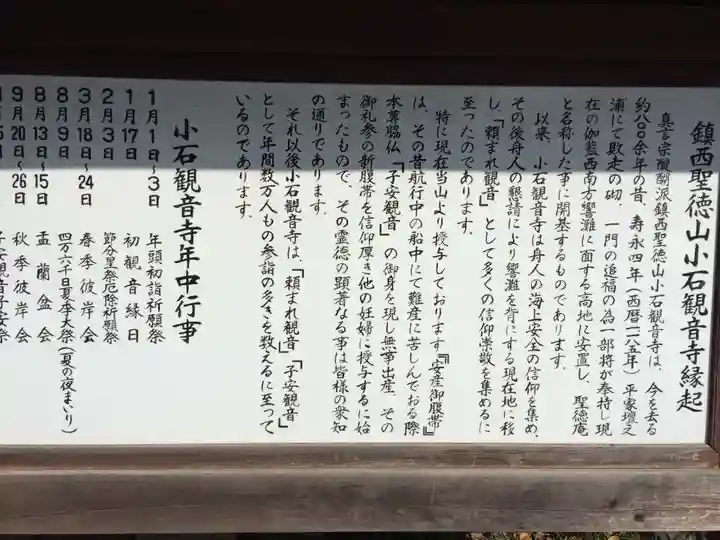 鎮西聖徳山小石観音寺縁起
真言宗醍醐派鎮西聖徳山小石観音寺は、今を去る
約八〇〇余年の昔、寿永四年(西暦一一八五年)平家壇之
浦にて敗走の砌、一門の追福の為一部将が奉持し現
在の伽藍西南方響灘に面する高地に安置し、聖徳庵
と名称した事に開基するものであります。
以来、小石観音寺は舟人の海上安全の信仰を集め、
その後舟人の懇請により響灘を背にする現在地に移
し、「頼まれ観音」として多くの信仰崇敬を集めるに
至ったのであります。
特に現在当山より授与しております『安産御腹帯』
は、その昔航行中の船中にて難産に苦しんでおる際
本尊脇仏「子安観音」の御身を現し無事出産、その
御礼参の新腹帯を信仰厚き他の妊婦に授与するに始
まったもので、その霊徳の顕著なる事は皆様の衆知
の通りであります。
それ以後小石観音寺は、「頼まれ観音」「子安観音」
として年間数万人もの参詣の多きを数えるに至って
いるのであります。
小石観音寺年中行事
1月1日~3日 年頭初詣祈願祭
1月17日 初観音縁日
2月3日 節分星祭厄除祈願祭
3月18日~24日 春季彼岸会
8月9日 四万六千日夏季大祭(夏の夜まいり)
8月13日~15日 盂蘭盆会
9月20日~26日 秋季彼岸会
子安観音子安祭